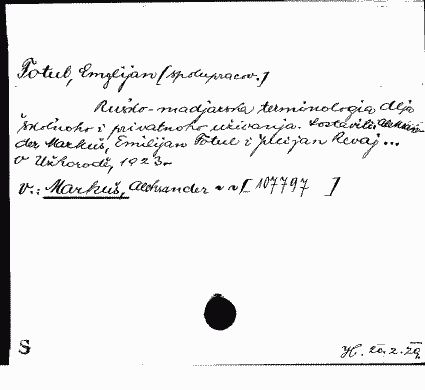 Fotul, Emglijan [spolupracov.]
Rusko-madjarska terminologia dlja
školnoho i privatnoho uživanja. Sostavili: Aleksan-
der Markuš, Emilijan Fotul i Julijan Revaj...
V Užhorodi, 1923.
v.: Markuš, Aleksander ~ ~ [107797 ]
S
20.2.